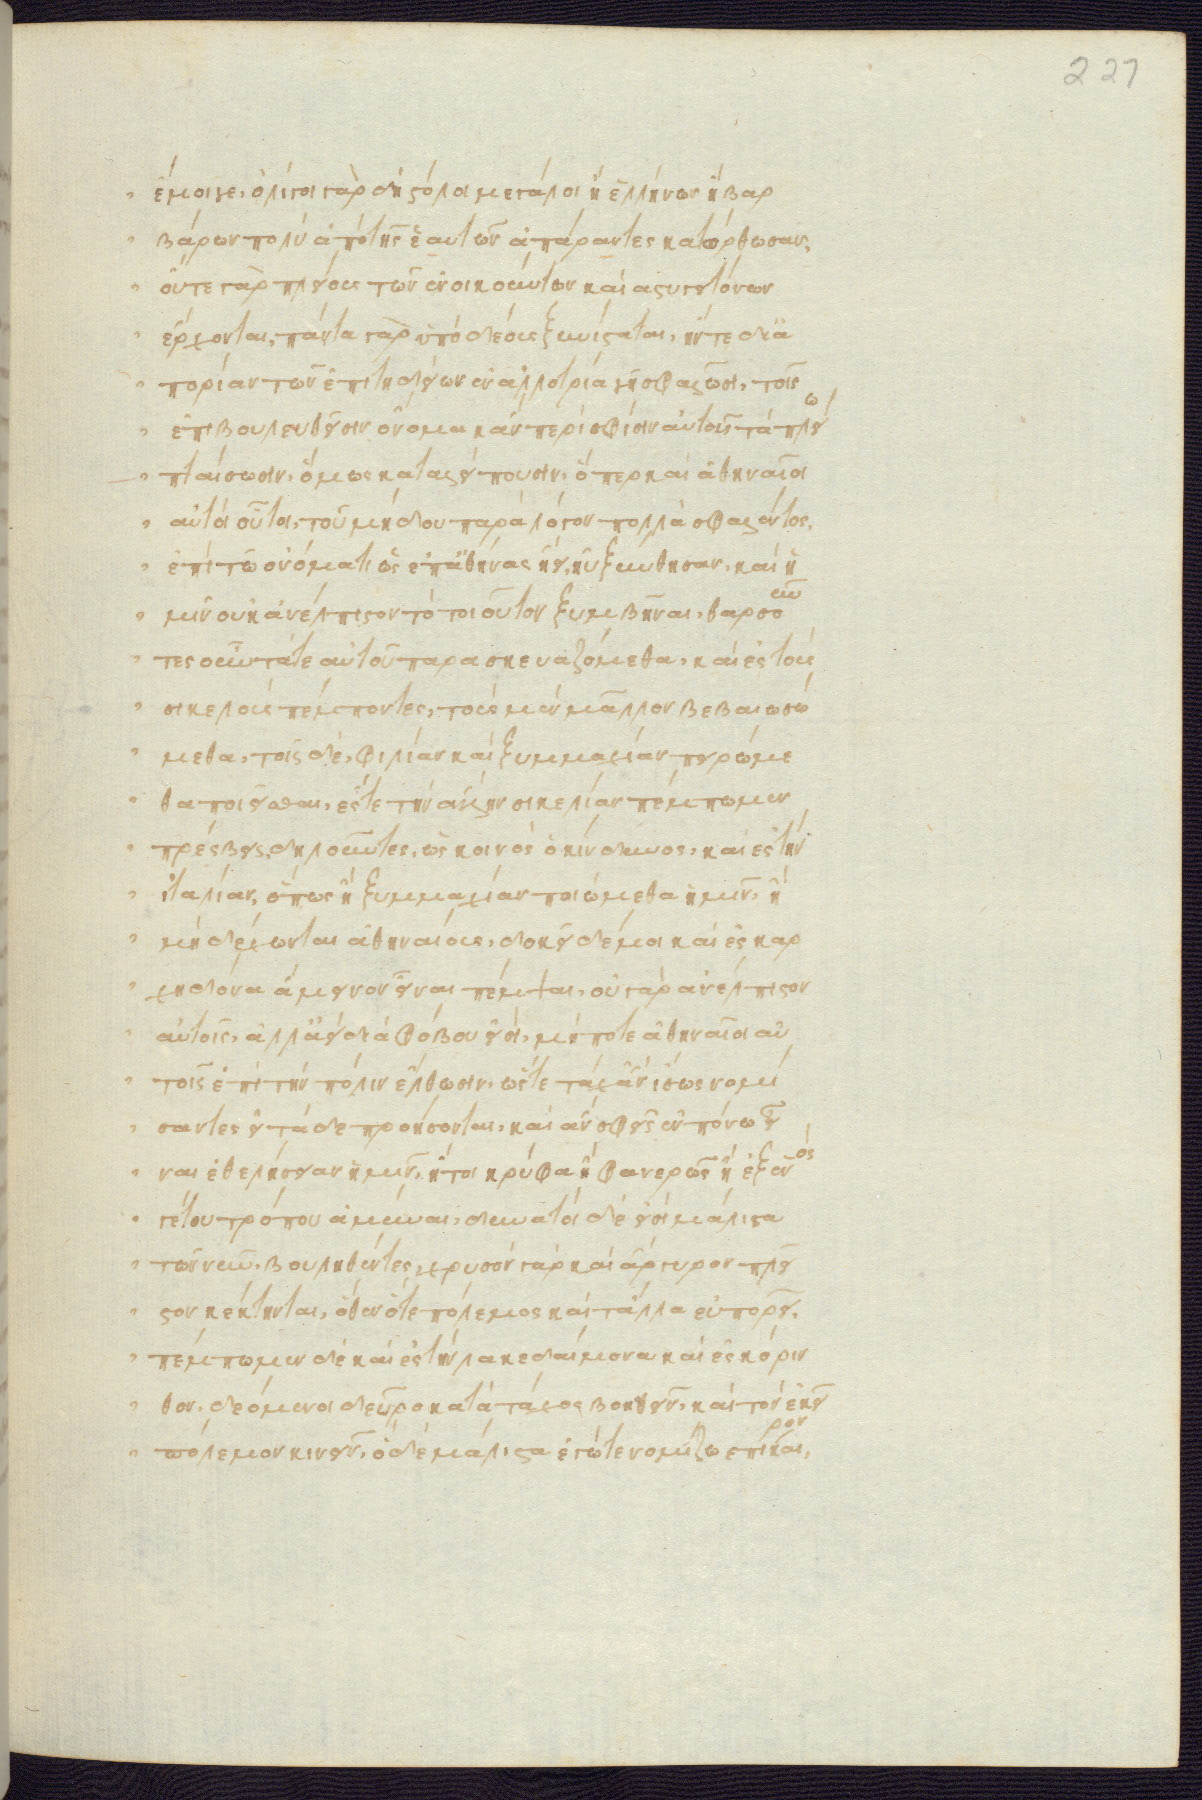 227
ἔμοιγε, ὀλίγοι γὰρ δὴ στόλοι μεγάλοι ἢ ἑλλήνων ἢ βαρ
βάρων πολὺ ἀπὸ τῆς ἑαυτῶν ἀπάραντες κατώρθωσαν,
οὔτε γὰρ πλείους τῶν ἐνοικούντων καὶ ἀστυγειτόνων
ἔρχονται, πάντα γὰρ ὑπὸ δέους ξυνίσταται, ἤν τε δι' ἀ
πορίαν τῶν ἐπιτηδείων ἐν ἀλλοτρία γῆ σφαλῶσι, τοῖς
ἐπιβουλευθεῖσιν ὄνομα κἂν περὶ σφίσιν αὐτοῖς τὰ πλείω
πταίσωσιν, ὅμως καταλείπουσιν, ὅπερ καὶ ἀθηναῖοι
αὐτοὶ οὗτοι, τοῦ μήδου παρὰ λόγον πολλὰ σφαλέντος,
ἐπὶ τῶ ὀνόματι ὡς ἐπ' ἀθήνας ἤει, ηὐξήθησαν, καὶ ἡ
μῖν οὐκ ἀνέλπιστον τὸ τοιοῦτον ξυμβῆναι, θαρσοῦν
τες οὖν τά τε αὐτοῦ παρασκευαζόμεθα, καὶ ἐς τοὺς
σικελοὺς πέμποντες, τοὺς μὲν μᾶλλον βεβαιωσώ
μεθα, τοῖς δὲ, φιλίαν καὶ ξυμμαχίαν πειρώμε
θα ποιεῖσθαι, ἔς τε τὴν ἄλλην σικελίαν πέμπωμεν
πρέσβεις, δηλοῦντες, ὡς κοινὸς ὁ κίνδυνος, καὶ ἐς τὴν
ἰταλίαν, ὅπως ἢ ξυμμαχίαν ποιώμεθα ἡμῖν, ἢ
μὴ δέχωνται ἀθηναίους, δοκεῖ δέ μοι καὶ ἐς καρ
χηδόνα ἄμεινον εἶναι πέμψαι, οὐ γὰρ ἀνέλπιστον
αὐτοῖς, ἀλλ' ἀεὶ διὰ φόβου εἰσὶ, μή ποτε ἀθηναῖοι αὐ
τοῖς ἐπὶ τὴν πόλιν ἔλθωσιν, ὥστε τάχ' ἂν ἴσως νομί
σαντες εἰ τάδε προήσονται, καὶ ἂν σφεῖς ἐν πόνω εἶ
ναι ἐθελήσειαν ἡμῖν, ἤτοι κρύφα ἢ φανερῶς ἢ ἐξ ἑνὸς
γέ του τρόπου ἀμῦναι, δυνατοὶ δέ εἰσι μάλιστα
τῶν νῦν, βουληθέντες, χρυσὸν γὰρ καὶ ἄργυρον πλεῖ
στον κέκτηνται, ὅθεν ὅ τε πόλεμος καὶ τἄλλα εὐπορεῖ,
πέμπωμεν δὲ καὶ ἐς τὴν λακεδαίμονα καὶ ἐς κόριν
θον, δεόμενοι δεῦρο κατὰ τάχος βοηθεῖν, καὶ τὸν ἐκεῖ
πόλεμον κινεῖν, ὃ δὲ μάλιστα ἐγώ τε νομίζω ἐπίκαιρον,